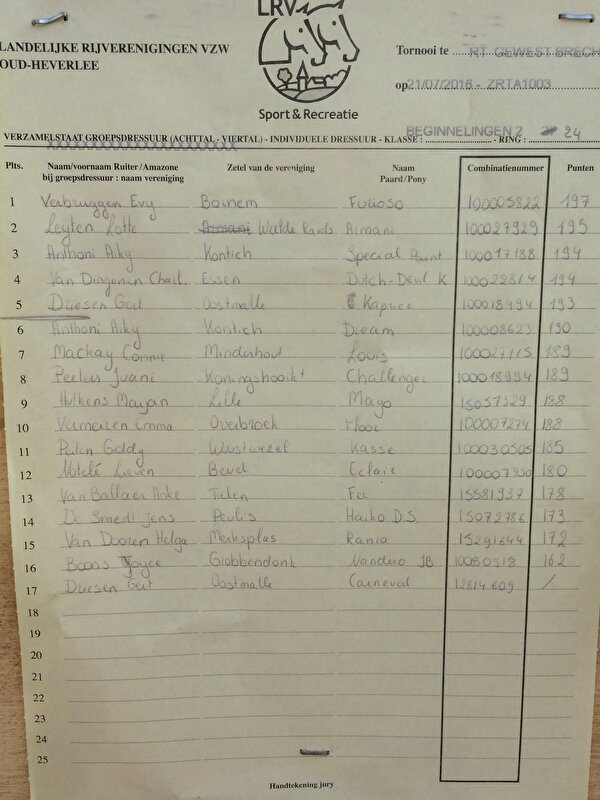 LRV
Sport & Recreatie
LANDELIJKE RIJVERENIGINGEN VZW
OUD-HEVERLEE
Tornooi te RT GEWEST BRECH
op 21/07/2016 - ZRTA1003
BEGINNELINGEN 2 24
VERZAMELSTAAT GROEPSDRESSUUR (ACHTTAL - VIERTAL) - INDIVIDUELE DRESSUUR - KLASSE : - RING :
Plts. Naam/voornaam Ruiter/Amazone Zetel van de vereniging Naam Combinatienummer Punten
bij groepsdressuur : naam vereniging Paard/Pony
1 Verbruggen Evy Bornem Furioso 100005822 197
2 Leyten Lotte Armani Weelde Rands Armani 100027929 195
3 Anthoni Arky Kontich Special Paint 100017188 194
4 Van Dingenen Charl. Essen Dutch-Devil K 100022814 194
5 Driesen Gert Oostmalle Kaprice 100018494 193
6 Anthoni Arky Kontich Dream 100008623 190
7 Mackay Connie Minderhout Louis 100027115 189
8 Peeters Juani Koningshooikt Challenger 100018994 189
9 Marjan Lille Mayo 15057329 188
10 Vermeiren Emma Overbroek 100007274 188
11 Giddy Wuustwezel Kasse 100030505 185
12 Lieven Bevel Eclair 100007930 180
13 Van Baelaer Anke Tielen Fee 15581937 178
14 De Smedt Jens Peulis Harko D.S. 15072786 173
15 Van Dooren Helga Merksplas Rania 15291644 172
16 Boons Joyce Grobbendonk Nandero JB 10030318 162
17 Driesen Gert Oostmalle Carneval 12814609 /
18
19
20
21
22
23
24
25
Handtekening jury